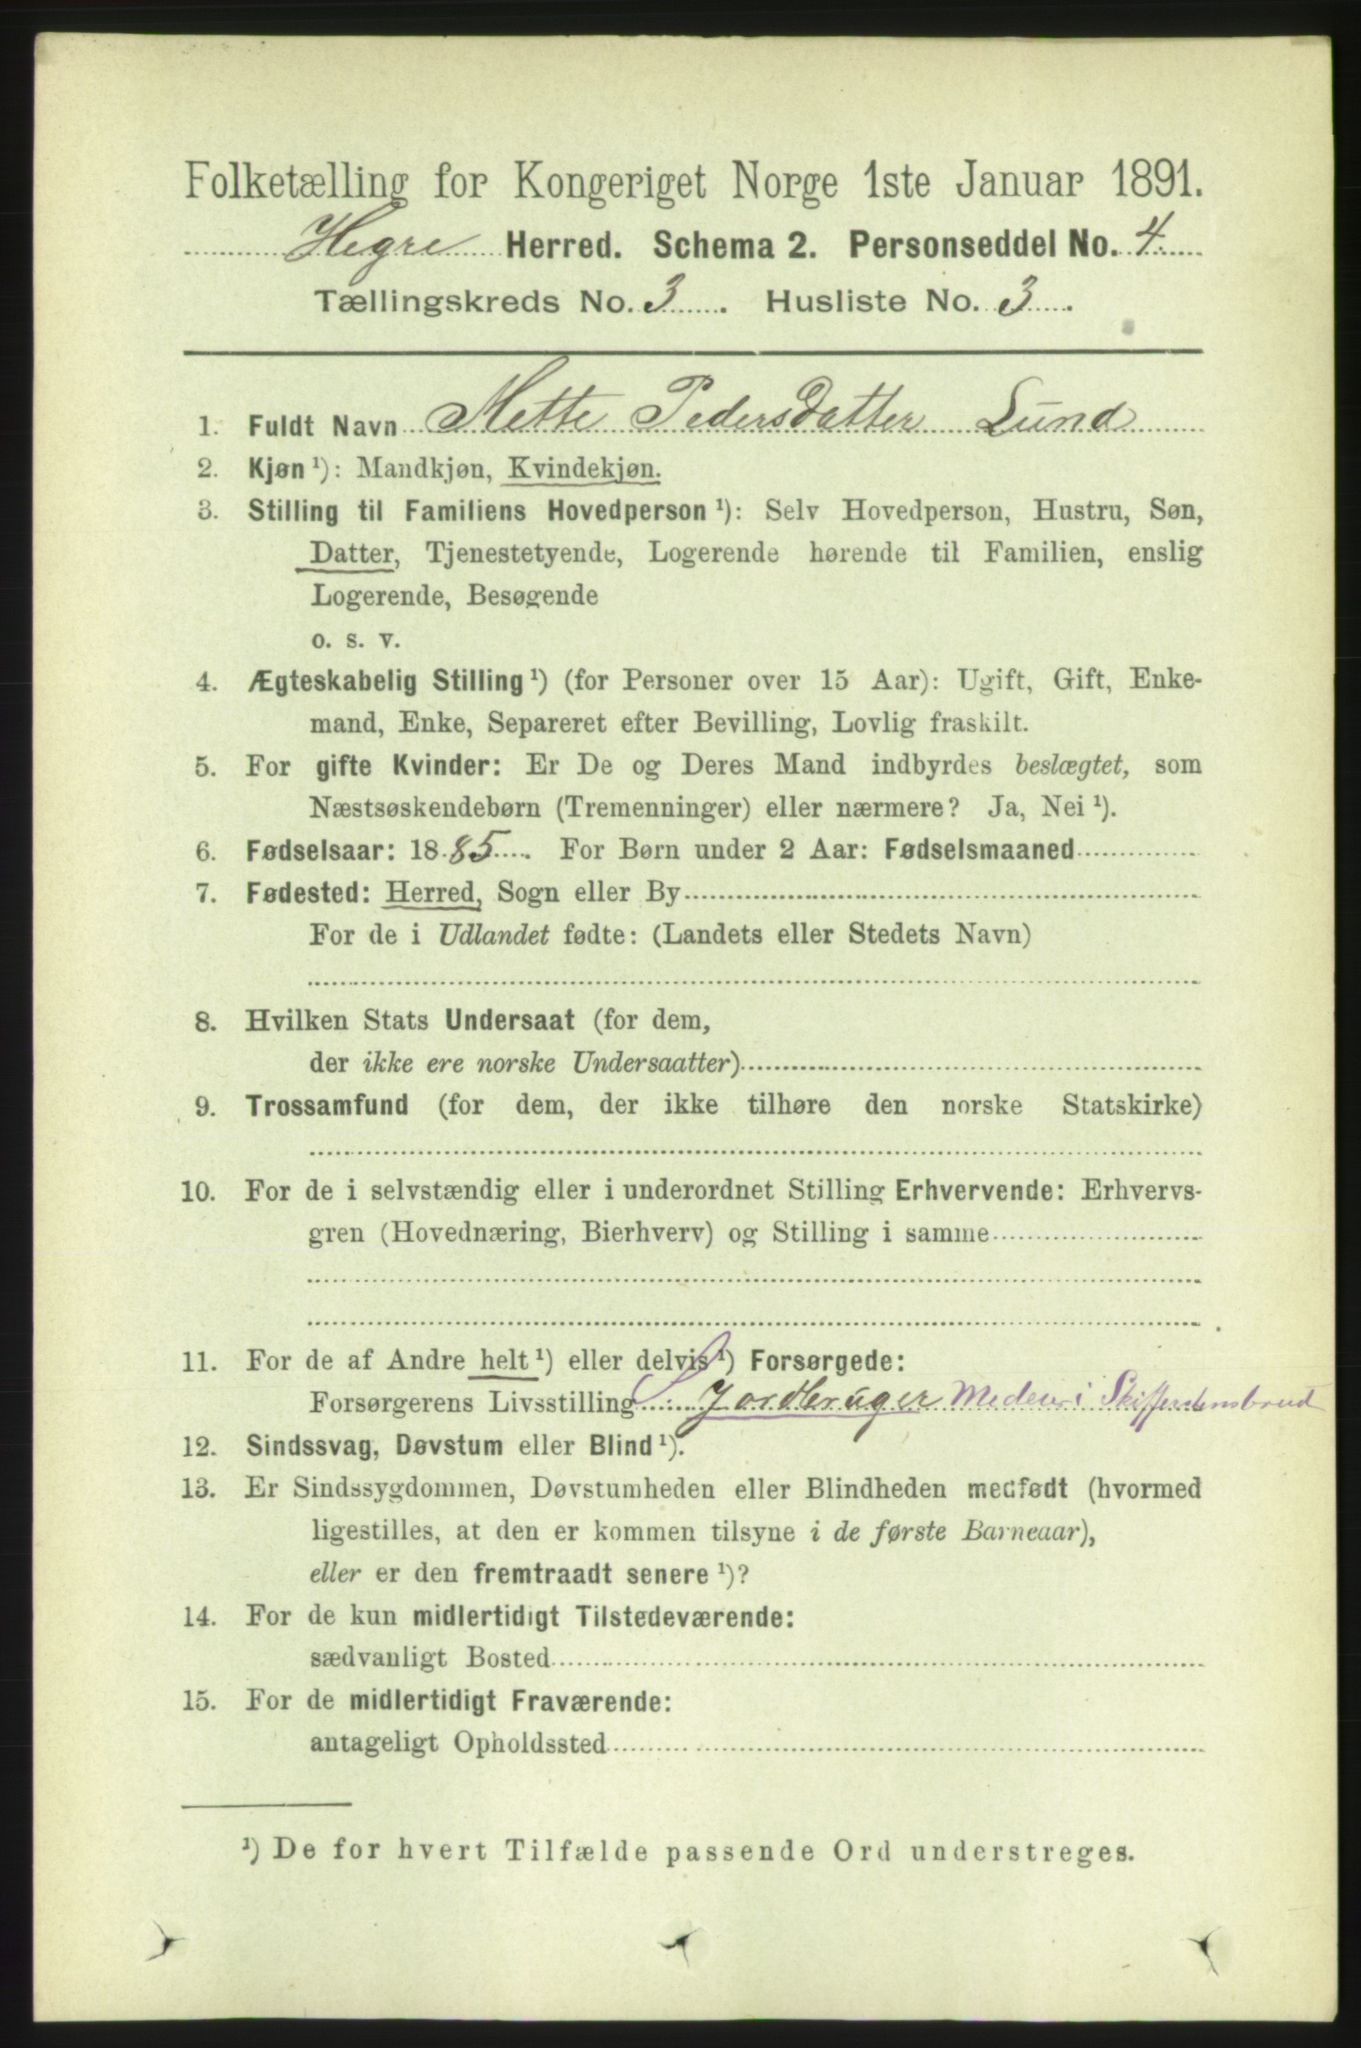 Folketælling for Kongeriget Norge 1ste Januar 1891.
Hegre Herred. Schema 2. Personseddel No. 4.
Tællingskreds No. 3. Husliste No. 3.
1. Fuldt Navn Mette Pedersdatter Lund
2. Kjøn ¹): Mandkjøn, Kvindekjøn.
3. Stilling til Familiens Hovedperson ¹): Selv Hovedperson, Hustru, Søn,
Datter, Tjenestetyende, Logerende hørende til Familien, enslig
Logerende, Besøgende
o. s. v.
4. Ægteskabelig Stilling ¹) (for Personer over 15 Aar): Ugift, Gift, Enke-
mand, Enke, Separeret efter Bevilling, Lovlig fraskilt.
5. For gifte Kvinder: Er De og Deres Mand indbyrdes beslægtet, som
Næstsøskendebørn (Tremenninger) eller nærmere? Ja, Nei ¹).
6. Fødselsaar: 1885. For Børn under 2 Aar: Fødselsmaaned
7. Fødested: Herred, Sogn eller By
For de i Udlandet fødte: (Landets eller Stedets Navn)
8. Hvilken Stats Undersaat (for dem,
der ikke ere norske Undersaatter)
9. Trossamfund (for dem, der ikke tilhøre den norske Statskirke)
10. For de i selvstændig eller i underordnet Stilling Erhvervende: Erhvervs-
gren (Hovednæring, Bierhverv) og Stilling i samme
11. For de af Andre helt ¹) eller delvis ¹) Forsørgede:
Forsørgerens Livsstilling Jordbruger Medeier i
12. Sindssvag, Døvstum eller Blind ¹).
13. Er Sindssygdommen, Døvstumheden eller Blindheden medfødt (hvormed
ligestilles, at den er kommen tilsyne i de første Barneaar),
eller er den fremtraadt senere ¹)?
14. For de kun midlertidigt Tilstedeværende:
sædvanligt Bosted
15. For de midlertidigt Fraværende:
antageligt Opholdssted
¹) De for hvert Tilfælde passende Ord understreges.